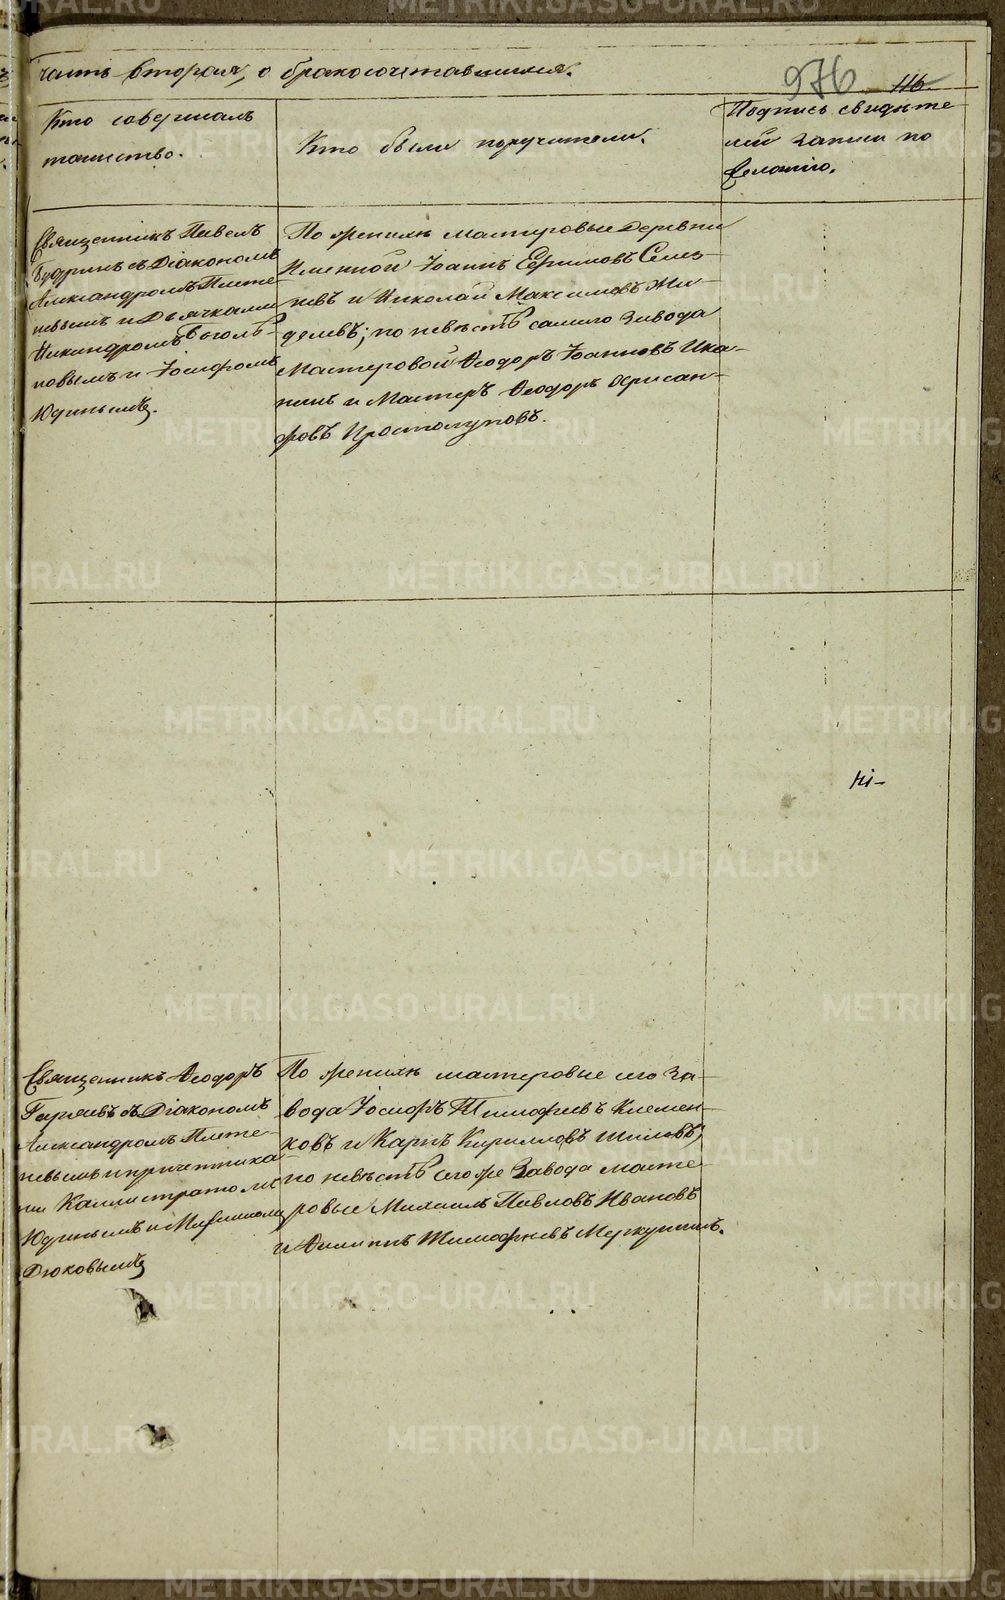 часть вторая, о бракосочетавшихся.
976 116
Кто совершалъ
таинство.
Кто были поручители.
Подпись свидѣте
лей записи по
желанію.
Священникъ Павелъ
съ Діакономъ
Александромъ Плете-
невымъ и Дьячками
Никандромъ Боголѣ-
повымъ и Іосифомъ
Юдинымъ.
По женихѣ мастеровые деревни
Іоаннъ Ефимовъ Селез-
невъ и Николай Максимовъ
по невѣстѣ самаго Завода
Мастеровой Ѳеодоръ Іоанновъ Ика-
нинъ и Мастеръ Ѳеодоръ
Простолуповъ.
Священникъ Ѳеодоръ
съ Діакономъ
Александромъ Плете-
невымъ и причетника-
ми Каллистратомъ
Юдинымъ и
Дюковымъ
По женихѣ мастеровые сего За-
вода Іосифъ Тимофеевъ Клемен-
ковъ и Карпъ Кирилловъ Шиловъ,
по невѣстѣ сего же Завода масте-
ровые Михаилъ Павловъ Ивановъ
и Филиппъ Тимофеевъ Меркушинъ.
METRIKI.GASO-URAL.RU